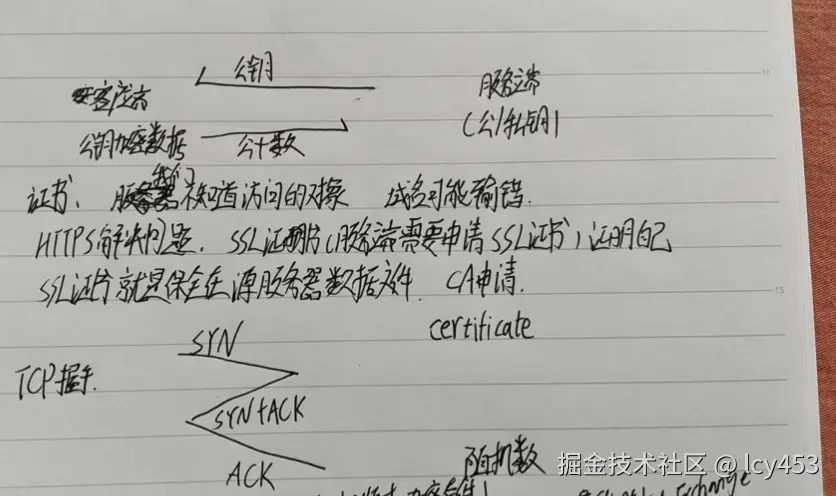 公钥
客户端 服务端
(公/私钥)
公钥加密数据 公+数
我们
证书、 不知道访问的对象 域名可能输错.
HTTPS解决问题. SSL证书 (服务端需要申请SSL证书) 证明自己
SSL证书就是保全在源服务器数据文件. CA申请.
certificate
SYN
TCP握手.
SYN+ACK
ACK
随机数
掘金技术社区 @ lcy453
Exchange